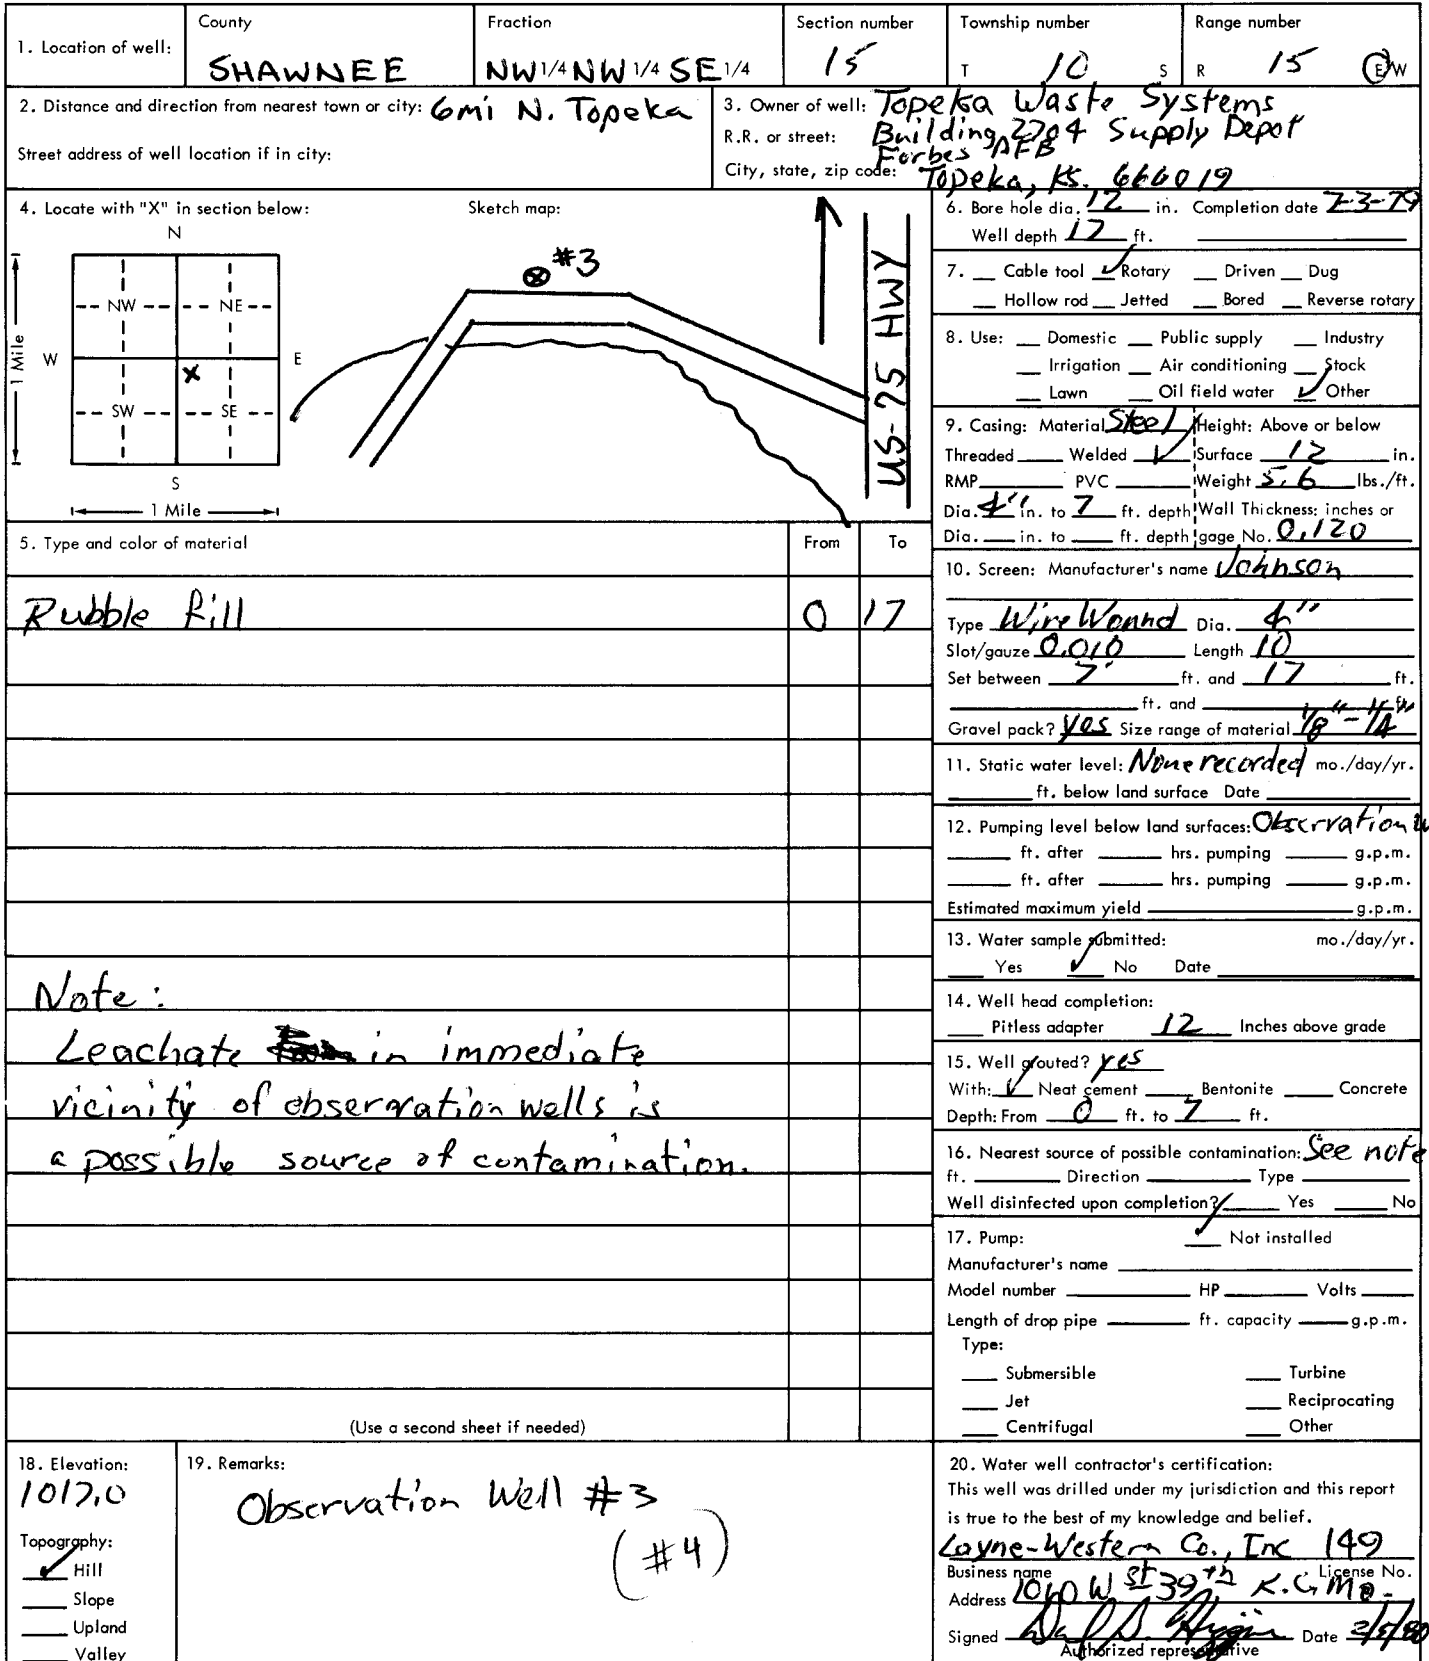 1. Location of well:
County
SHAWNEE
Fraction
NW 1/4 NW 1/4 SE 1/4
Section number
15
Township number
T 10 S
Range number
R 15 E/W
2. Distance and direction from nearest town or city: 6mi N. Topeka
Street address of well location if in city:
3. Owner of well: Topeka Waste Systems
R.R. or street: Building 2704 Supply Depot
Forbes AFB
City, state, zip code: Topeka, KS. 666019
4. Locate with "X" in section below:
N
NW NE
W E
X
SW SE
S
1 Mile
1 Mile
Sketch map:
#3
US-75 HWY
5. Type and color of material From To
Rubble fill 0 17
Note:
Leachate in immediate
vicinity of observation wells is
a possible source of contamination.
(Use a second sheet if needed)
6. Bore hole dia. 12 in. Completion date 7-3-79
Well depth 17 ft.
7. Cable tool ✓ Rotary Driven Dug
Hollow rod Jetted Bored Reverse rotary
8. Use: Domestic Public supply Industry
Irrigation Air conditioning Stock
Lawn Oil field water ✓ Other
9. Casing: Material Steel Height: Above or below
Threaded Welded ✓ Surface 12 in.
RMP PVC Weight 5.6 lbs./ft.
Dia. 4" in. to 7 ft. depth Wall Thickness: inches or
Dia. in. to ft. depth gage No. 0.120
10. Screen: Manufacturer's name Johnson
Type Wire Wound Dia. 4"
Slot/gauze 0.010 Length 10
Set between 7' ft. and 17 ft.
ft. and ft.
Gravel pack? yes Size range of material 1/8" - 1/4"
11. Static water level: None recorded mo./day/yr.
ft. below land surface Date
12. Pumping level below land surfaces: Observation W
ft. after hrs. pumping g.p.m.
ft. after hrs. pumping g.p.m.
Estimated maximum yield g.p.m.
13. Water sample submitted: mo./day/yr.
Yes ✓ No Date
14. Well head completion:
Pitless adapter 12 Inches above grade
15. Well grouted? yes
With: ✓ Neat cement Bentonite Concrete
Depth: From 0 ft. to 7 ft.
16. Nearest source of possible contamination: See note
ft. Direction Type
Well disinfected upon completion? Yes No
17. Pump: ✓ Not installed
Manufacturer's name
Model number HP Volts
Length of drop pipe ft. capacity g.p.m.
Type:
Submersible Turbine
Jet Reciprocating
Centrifugal Other
18. Elevation:
1017.0
Topography:
✓ Hill
Slope
Upland
Valley
19. Remarks:
Observation Well #3
(#4)
20. Water well contractor's certification:
This well was drilled under my jurisdiction and this report
is true to the best of my knowledge and belief.
Layne-Western Co., Inc 149
Business name License No.
Address 1010 W 39th K.C. Mo.
Signed Date 2/5/80
Authorized representative